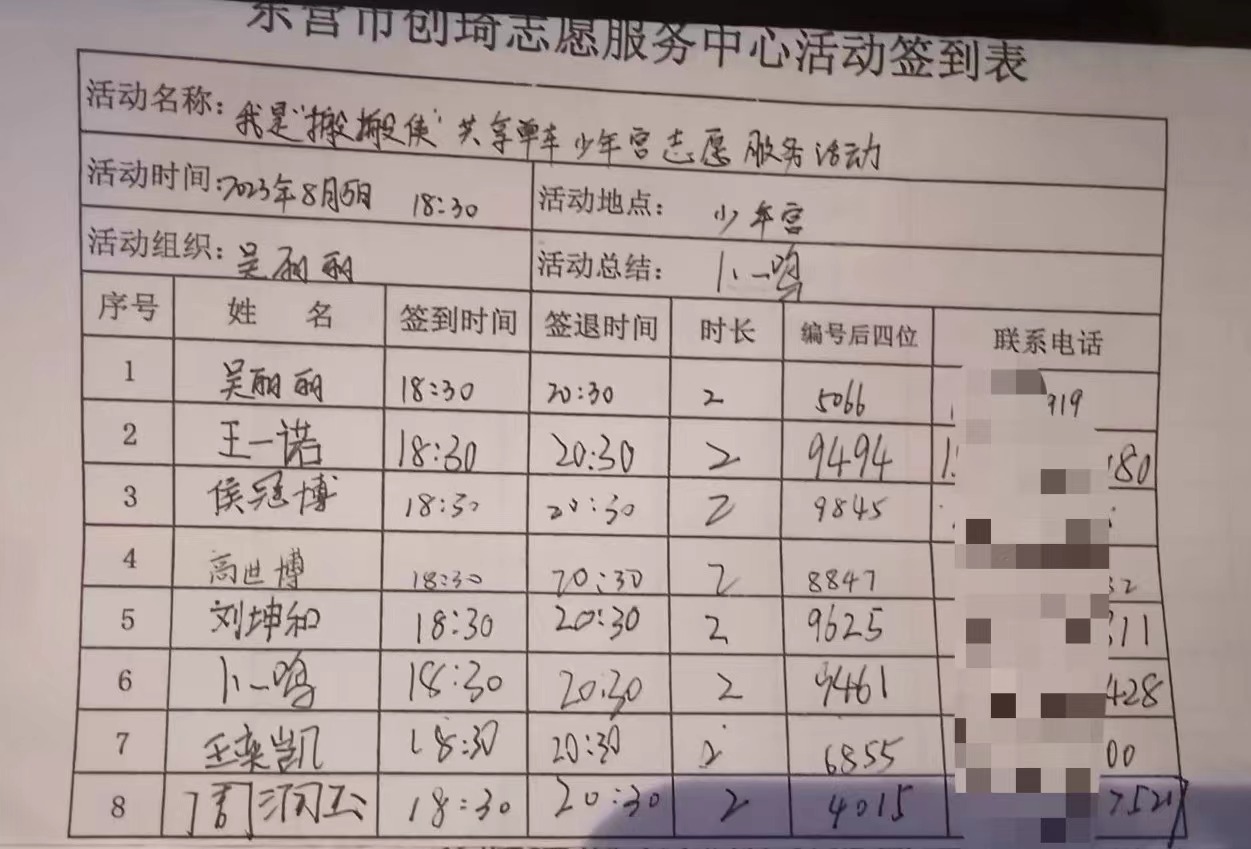 东营市创琦志愿服务中心活动签到表
活动名称: 我是"搬搬侠"共享单车少年宫志愿服务活动
活动时间: 2023年8月5日 18:30 活动地点: 少年宫
活动组织: 吴丽丽 活动总结: 卜一鸣
序号 姓 名 签到时间 签退时间 时长 编号后四位 联系电话
1 吴丽丽 18:30 20:30 2 5066 919
2 王一诺 18:30 20:30 2 9494 80
3 侯冠博 18:30 20:30 2 9845
4 高世博 18:30 20:30 2 8847 32
5 刘坤和 18:30 20:30 2 9625 11
6 卜一鸣 18:30 20:30 2 9461 428
7 王奕凯 18:30 20:30 2 6855 00
8 周润玉 18:30 20:30 2 4015 7521